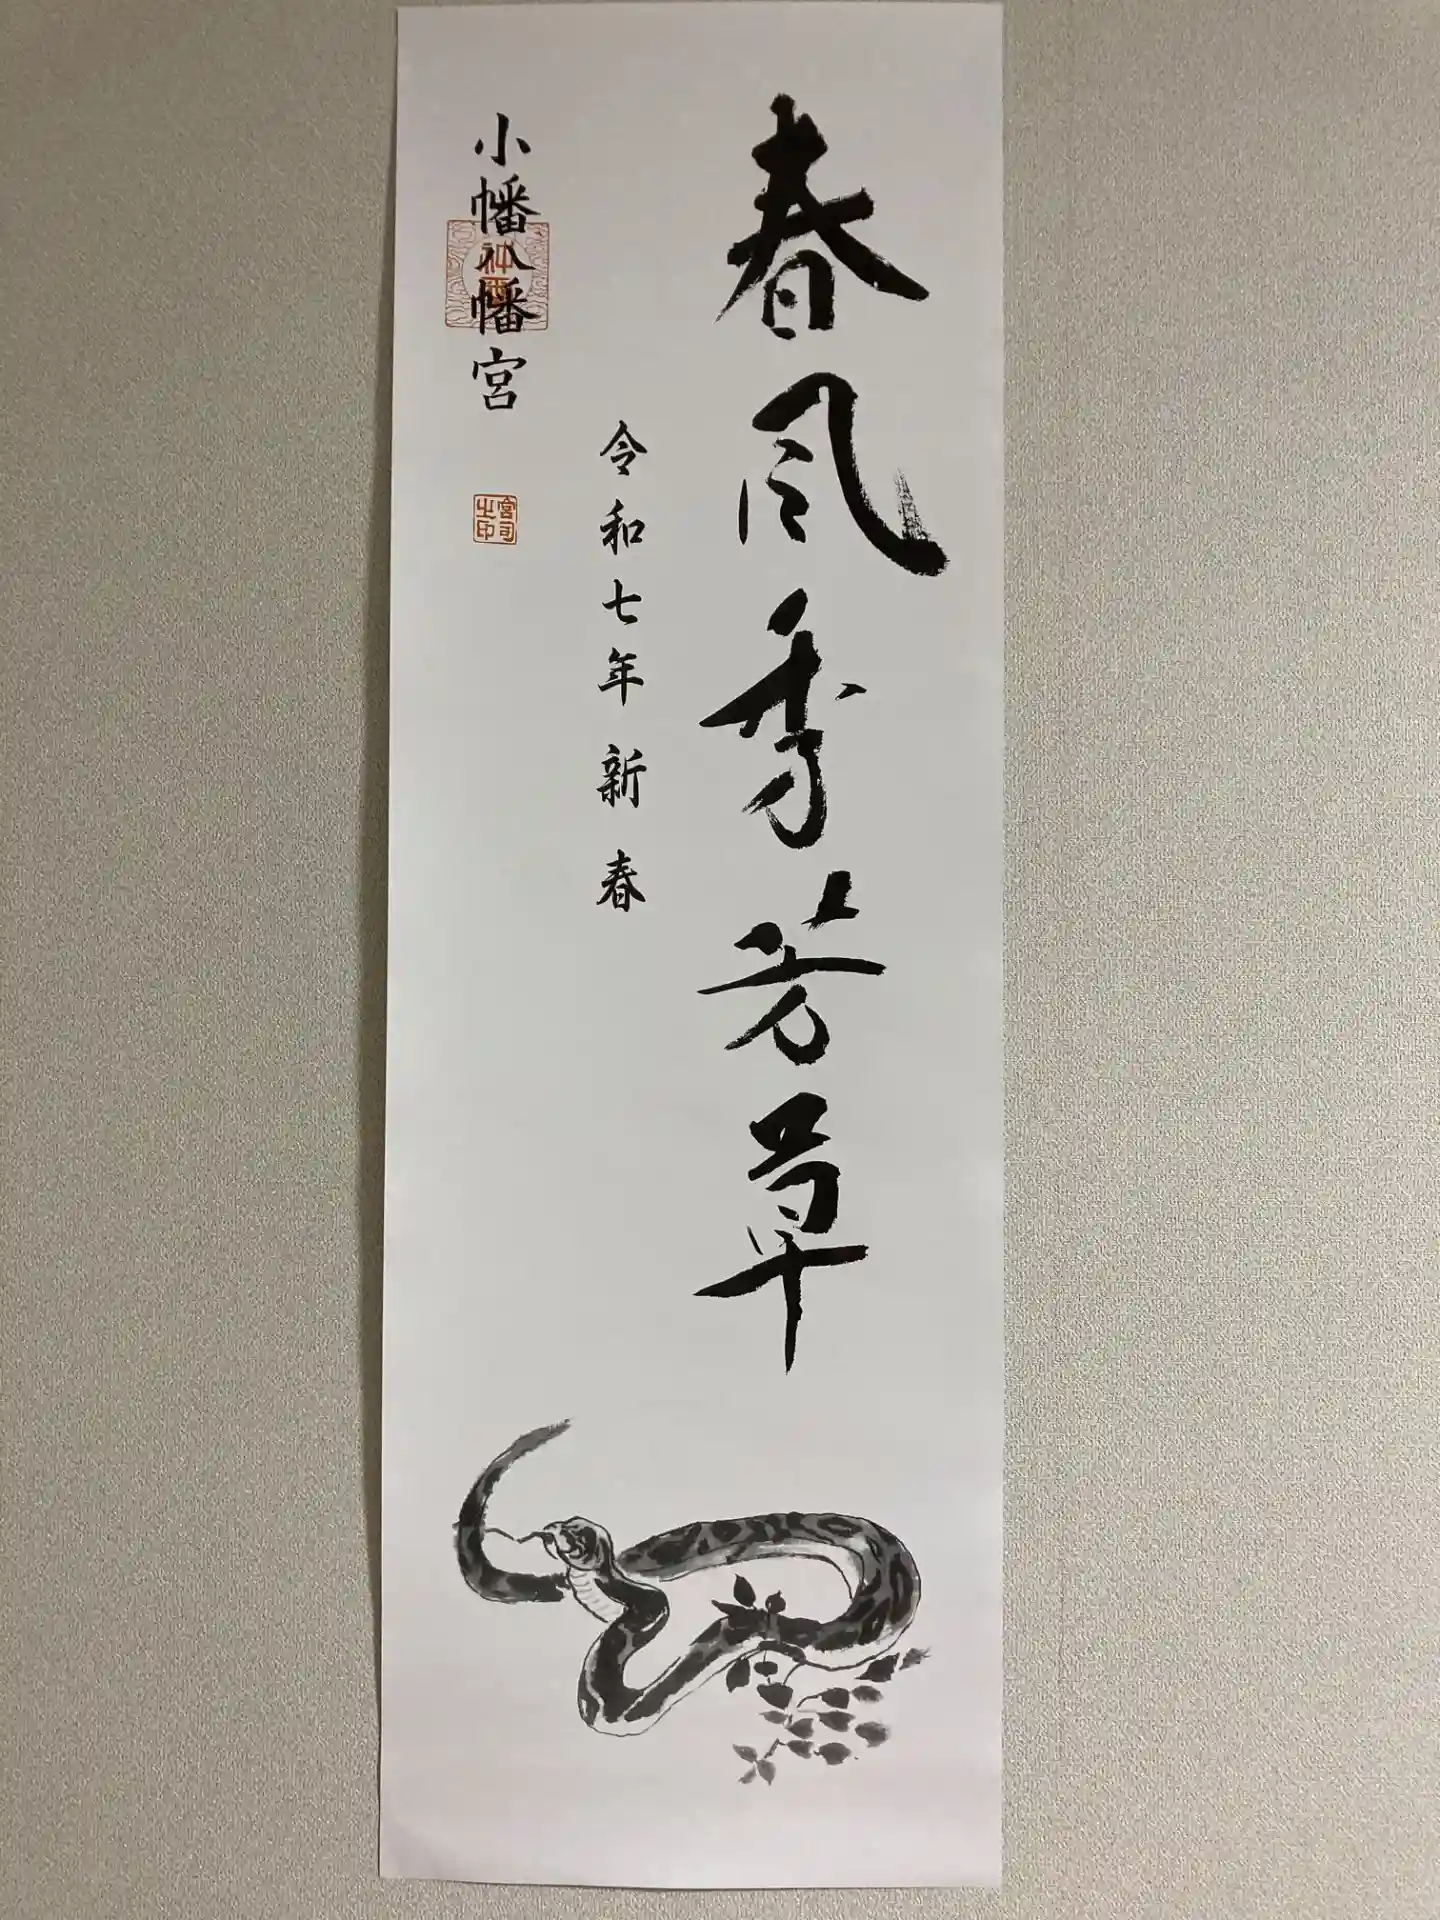 春風香芳草
令和七年 新春
小幡八幡宮
神璽
宮司之印